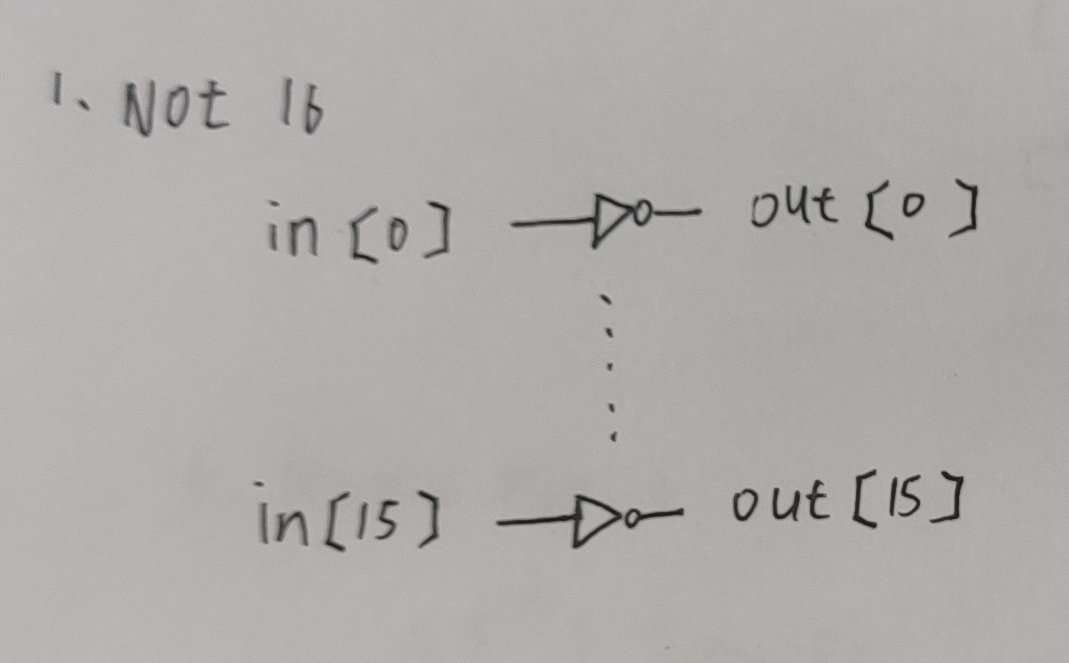 1. Not 16
in [0] out [0]
in [15] out [15]